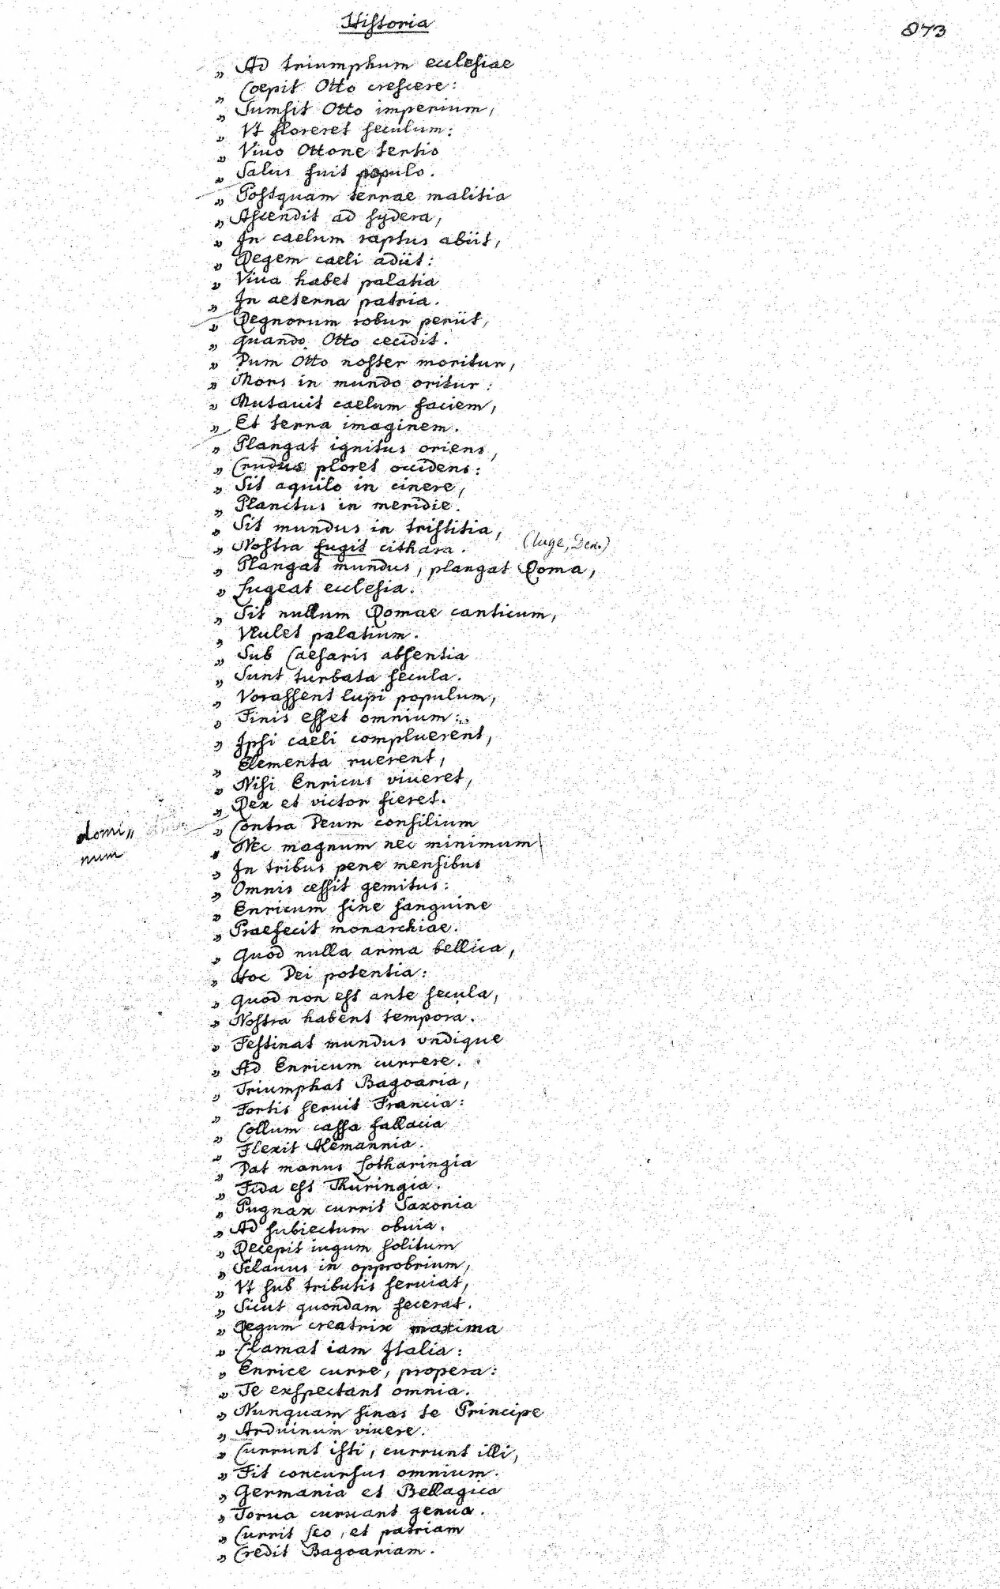 Historia
873
„ Ad triumphum ecclesiae
„ Coepit Otto crescere:
„ Sumsit Otto imperium,
„ Vt floreret seculum:
„ Viuo Ottone tertio
„ Salus fuit populo.
„ Postquam terrae malitia
„ Ascendit ad sydera,
„ In caelum raptus abiit,
„ Regem caeli adiit:
„ Viua habet palatia
„ In aeterna patria.
„ Regnorum robur periit,
„ quando Otto cecidit.
„ Dum Otto noster moritur,
„ Mors in mundo oritur:
„ Mutauit caelum faciem,
„ Et terra imaginem.
„ Plangat ignitus oriens,
„ Crudus ploret occidens:
„ Sit aquilo in cinere,
„ Planctus in meridie.
„ Sit mundus in tristitia,
„ Nostra fugit cithara. (luge, Dex.)
„ Plangat mundus, plangat Roma,
„ Lugeat ecclesia.
„ Sit nullum Romae canticum,
„ Vlulet palatium.
„ Sub Caesaris absentia
„ Sunt turbata secula.
„ Vorassent lupi populum,
„ Finis esset omnium:
„ Ipsi caeli compluerent,
„ Elementa ruerent,
„ Nisi Enricus viueret,
„ Rex et victor fieret.
„ Contra Deum consilium
domi„
num
„ Nec magnum nec minimum
„ In tribus pene mensibus
„ Omnis cessit gemitus:
„ Enricum sine sanguine
„ Praefecit monarchiae.
„ Quod nulla arma bellica,
„ Hoc Dei potentia:
„ Quod non est ante secula,
„ Nostra habent tempora.
„ Festinat mundus vndique
„ Ad Enricum currere.
„ Triumphat Bagoaria,
„ Fortis seruit Francia:
„ Collum cassa fallacia
„ Flexit Alemannia.
„ Dat manus Lotharingia
„ Fida est Thuringia.
„ Pugnax currit Saxonia
„ Ad subiectum obuia.
„ Recepit iugum solitum
„ Sclauus in opprobrium,
„ Vt sub tributis seruiat,
„ Sicut quondam fecerat.
„ Regum creatrix maxima
„ Clamat iam Italia:
„ Enrice curre, propera:
„ Te exspectant omnia.
„ Nunquam sinas te Principe
„ Arduinum viuere.
„ Currunt isti, currunt illi,
„ Fit concursus omnium.
„ Germania et Bellagica
„ Torua curuant genua.
„ Currit Leo, et patriam
„ Credit Bagoariam.